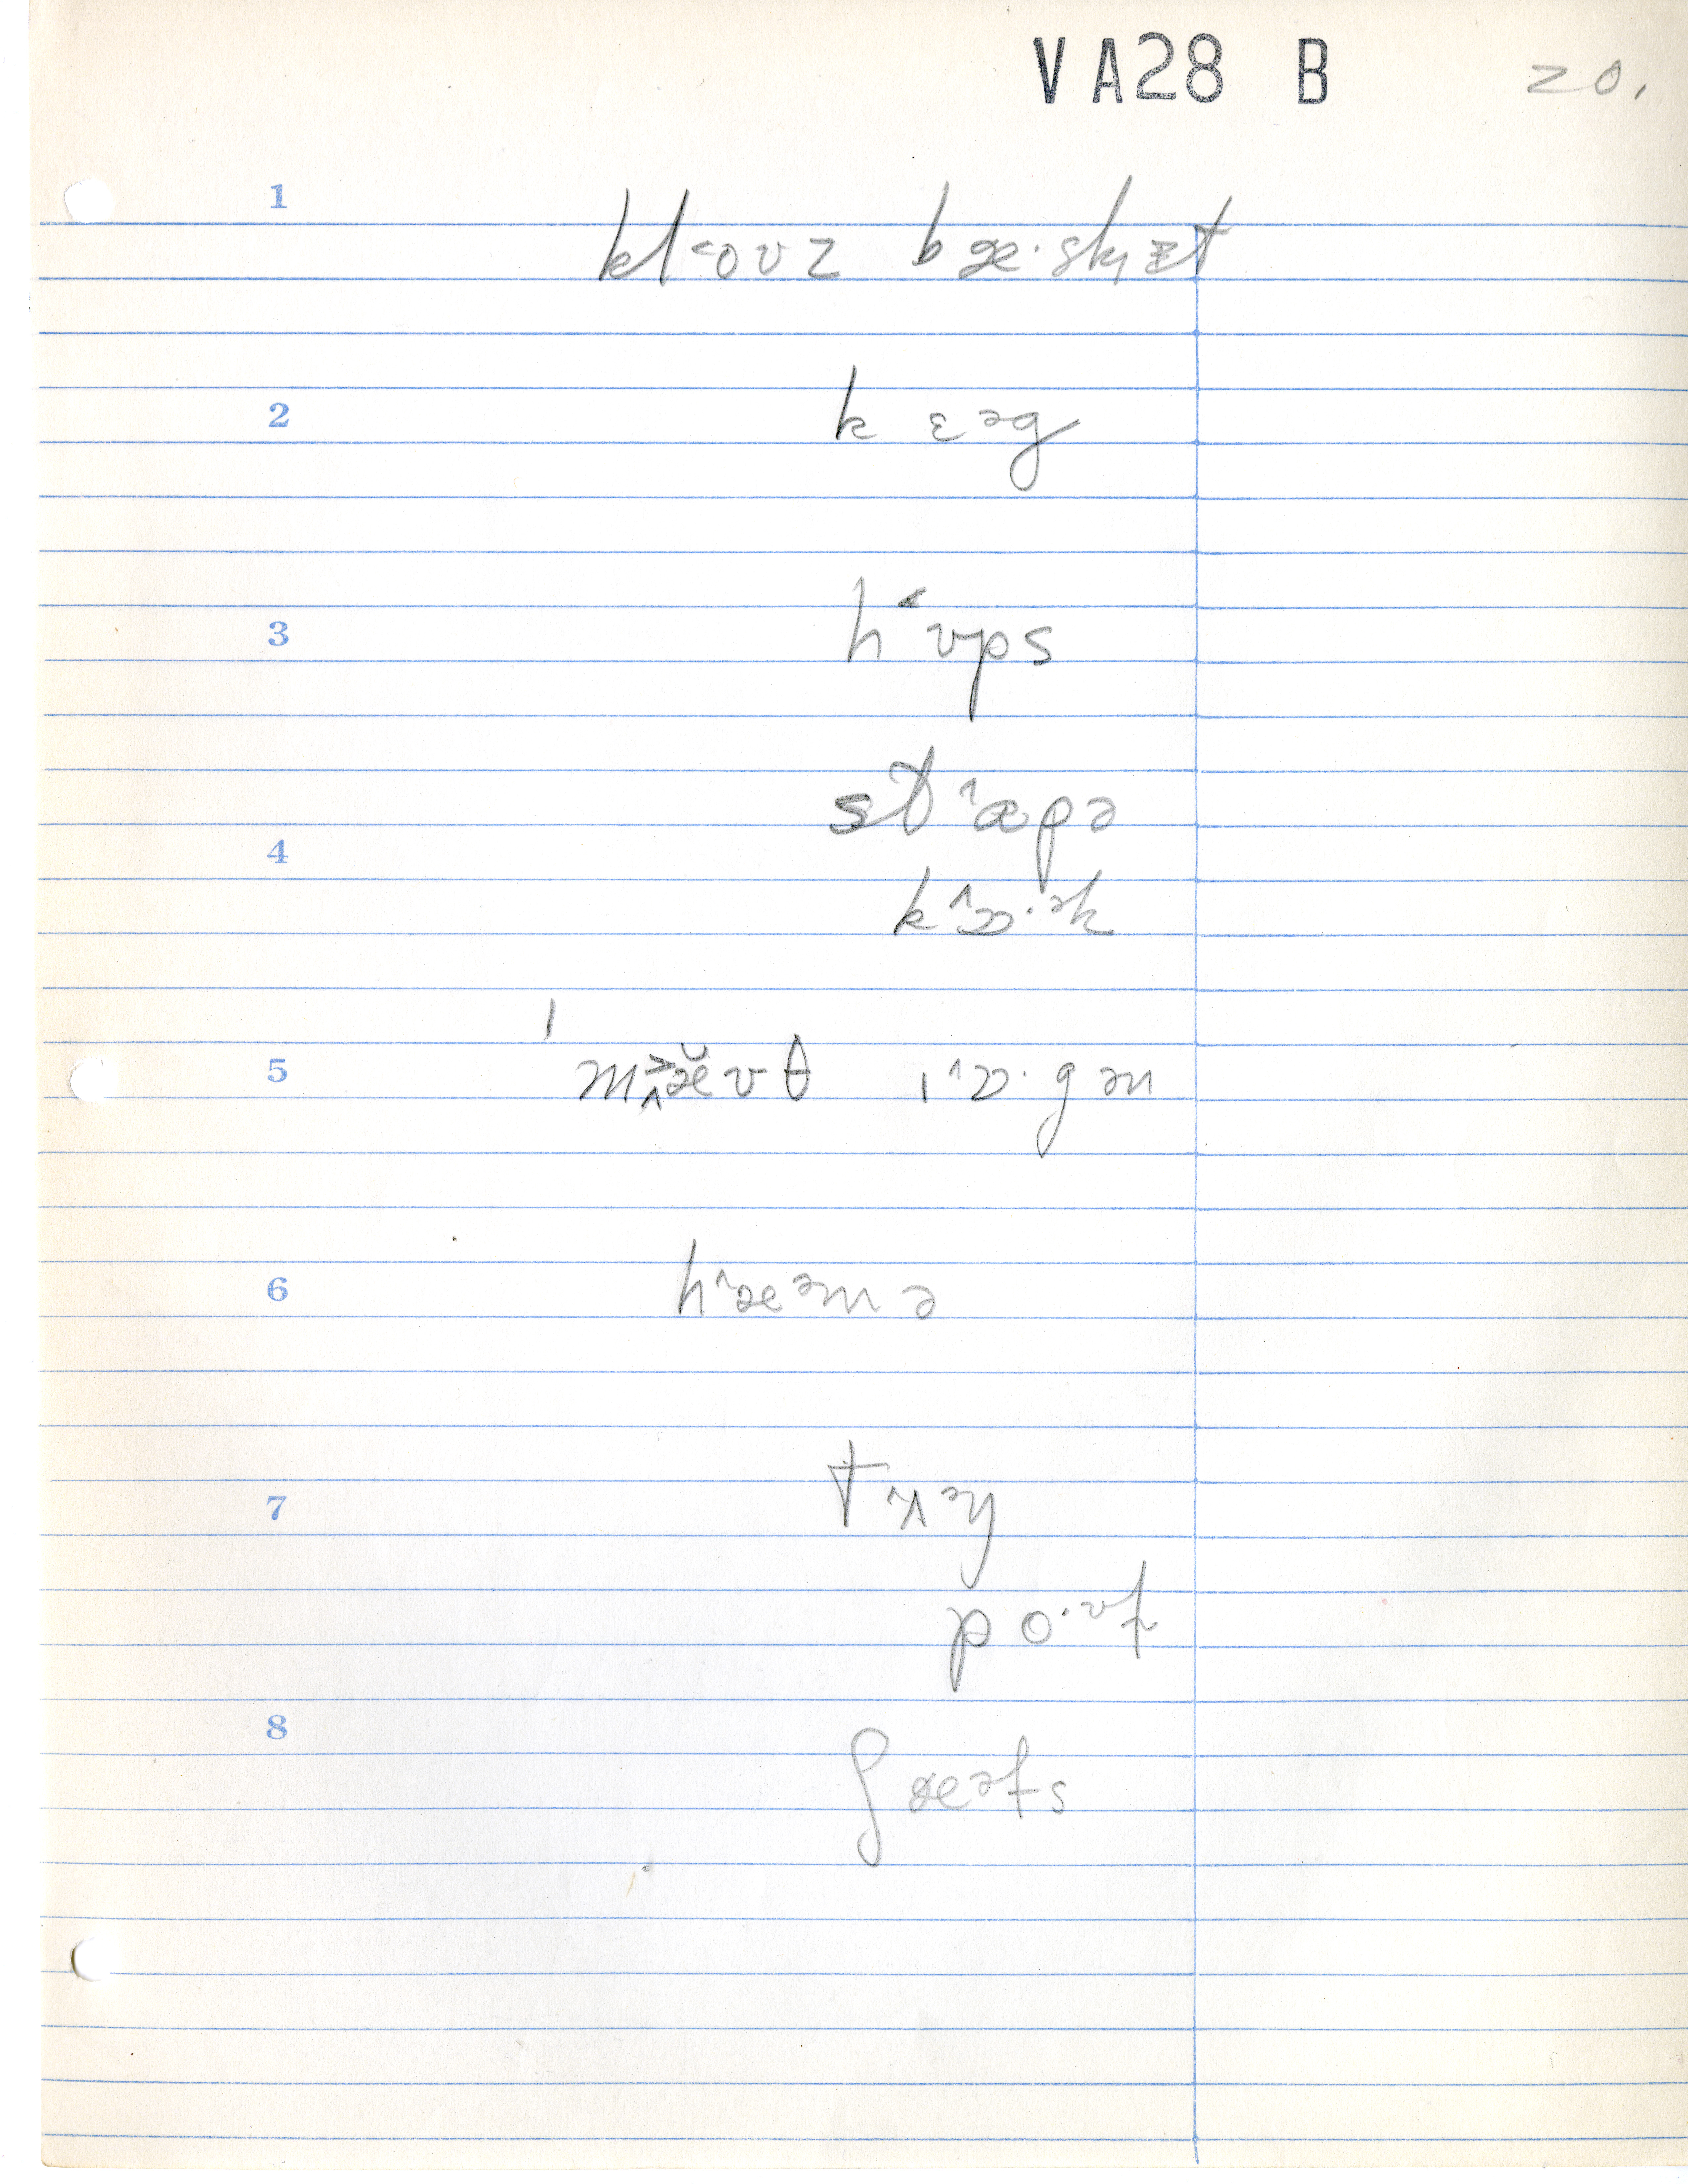 VA28 B 20.
1
kl˂oʊz bæ·skᵻzt
2
k ɛəg
3
h˂ʊps
st˄æpə
4
k˄ɒ·ək
5
ˈmæ̆ʊθ ɪ˄ɒ·gən
6
h˄æəmə
7
tʌəŋ
po·ʊɫ
8
ʃæəfs